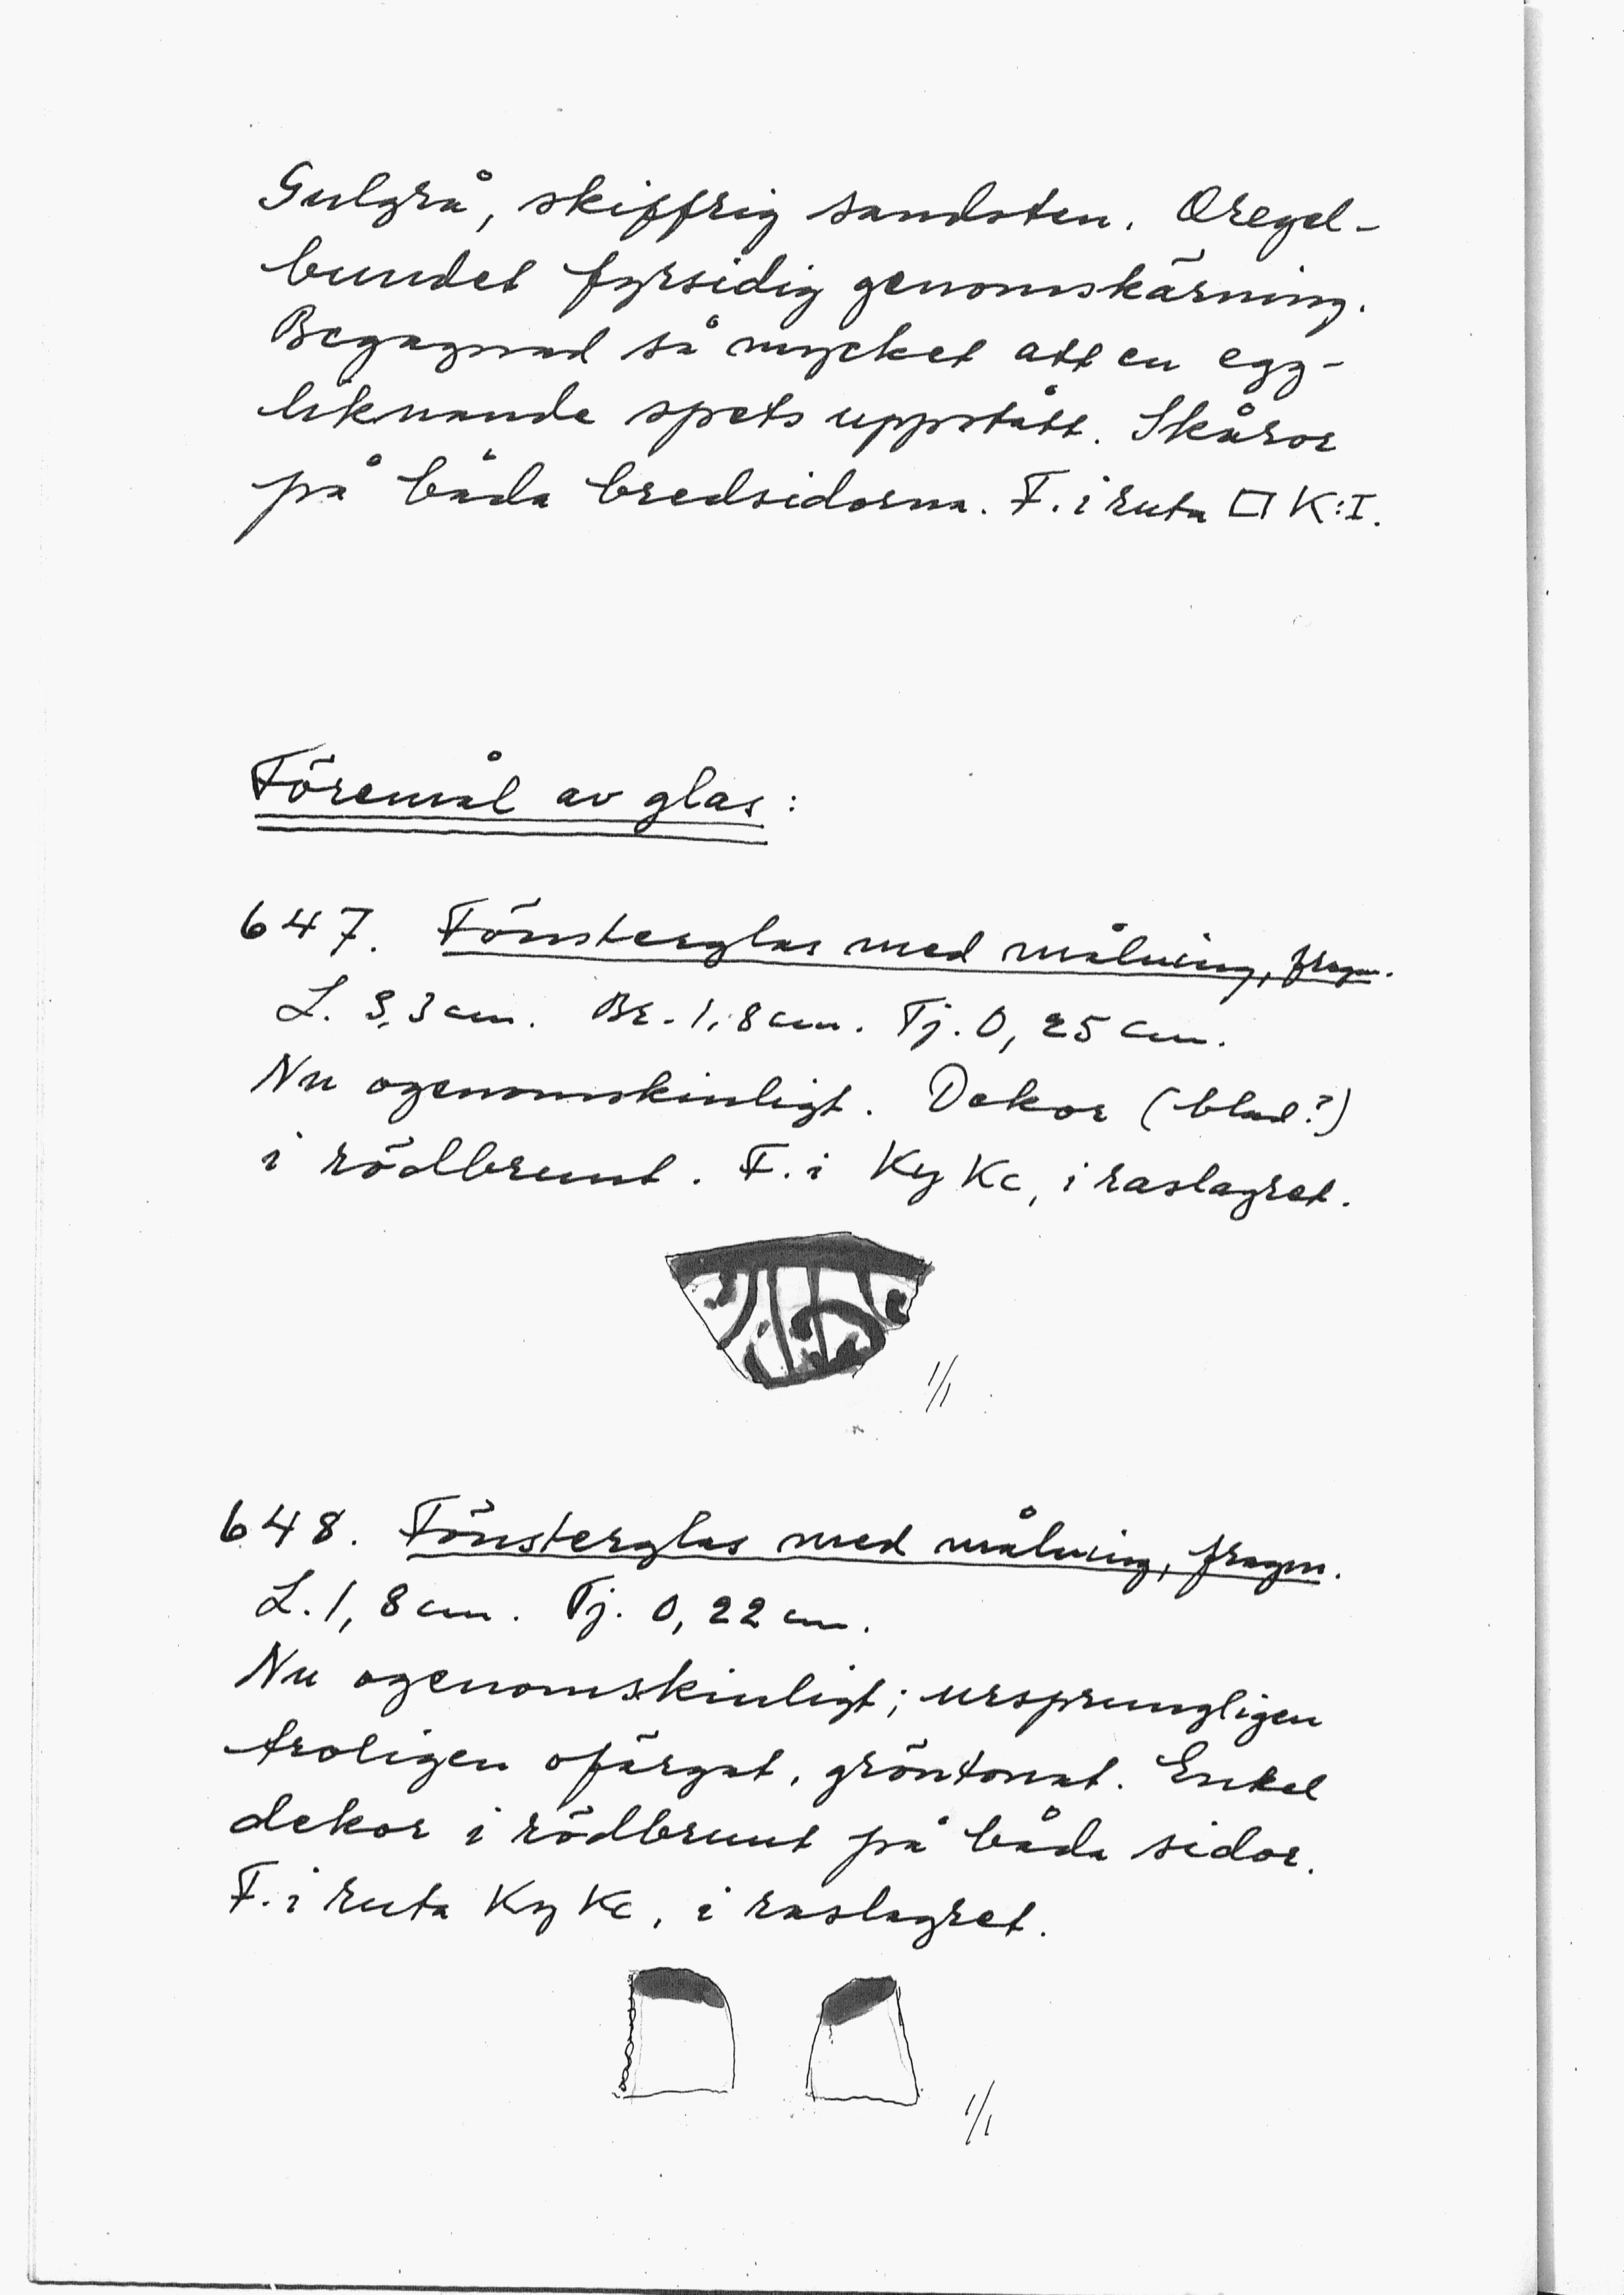 Gulgrå, skiffrig sandsten. Oregel-
bundet fyrsidig genomskärning.
Begagnad så mycket att en egg-
liknande spets uppstått. Skåror
på båda bredsidorna. F. i ruta □ K:I.
Föremål av glas:
647. Fönsterglas med målning, fragm.
L. 3,3 cm. Br. 1,8 cm. Tj. 0,25 cm.
Nu ogenomskinligt. Dekor (blad?)
i rödbrunt. F. i Ky Kc, i raslagret.
1/1
648. Fönsterglas med målning, fragm.
L. 1,8 cm. Tj. 0,22 cm.
Nu ogenomskinligt; ursprungligen
troligen ofärgat, gröntonat. Enkel
dekor i rödbrunt på båda sidor.
F. i ruta Ky Kc, i raslagret.
1/1